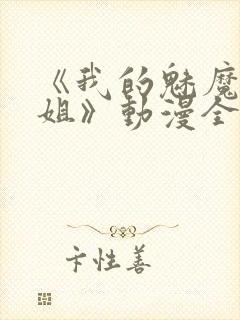 《我的魅魔
姐》動漫全
卞性善